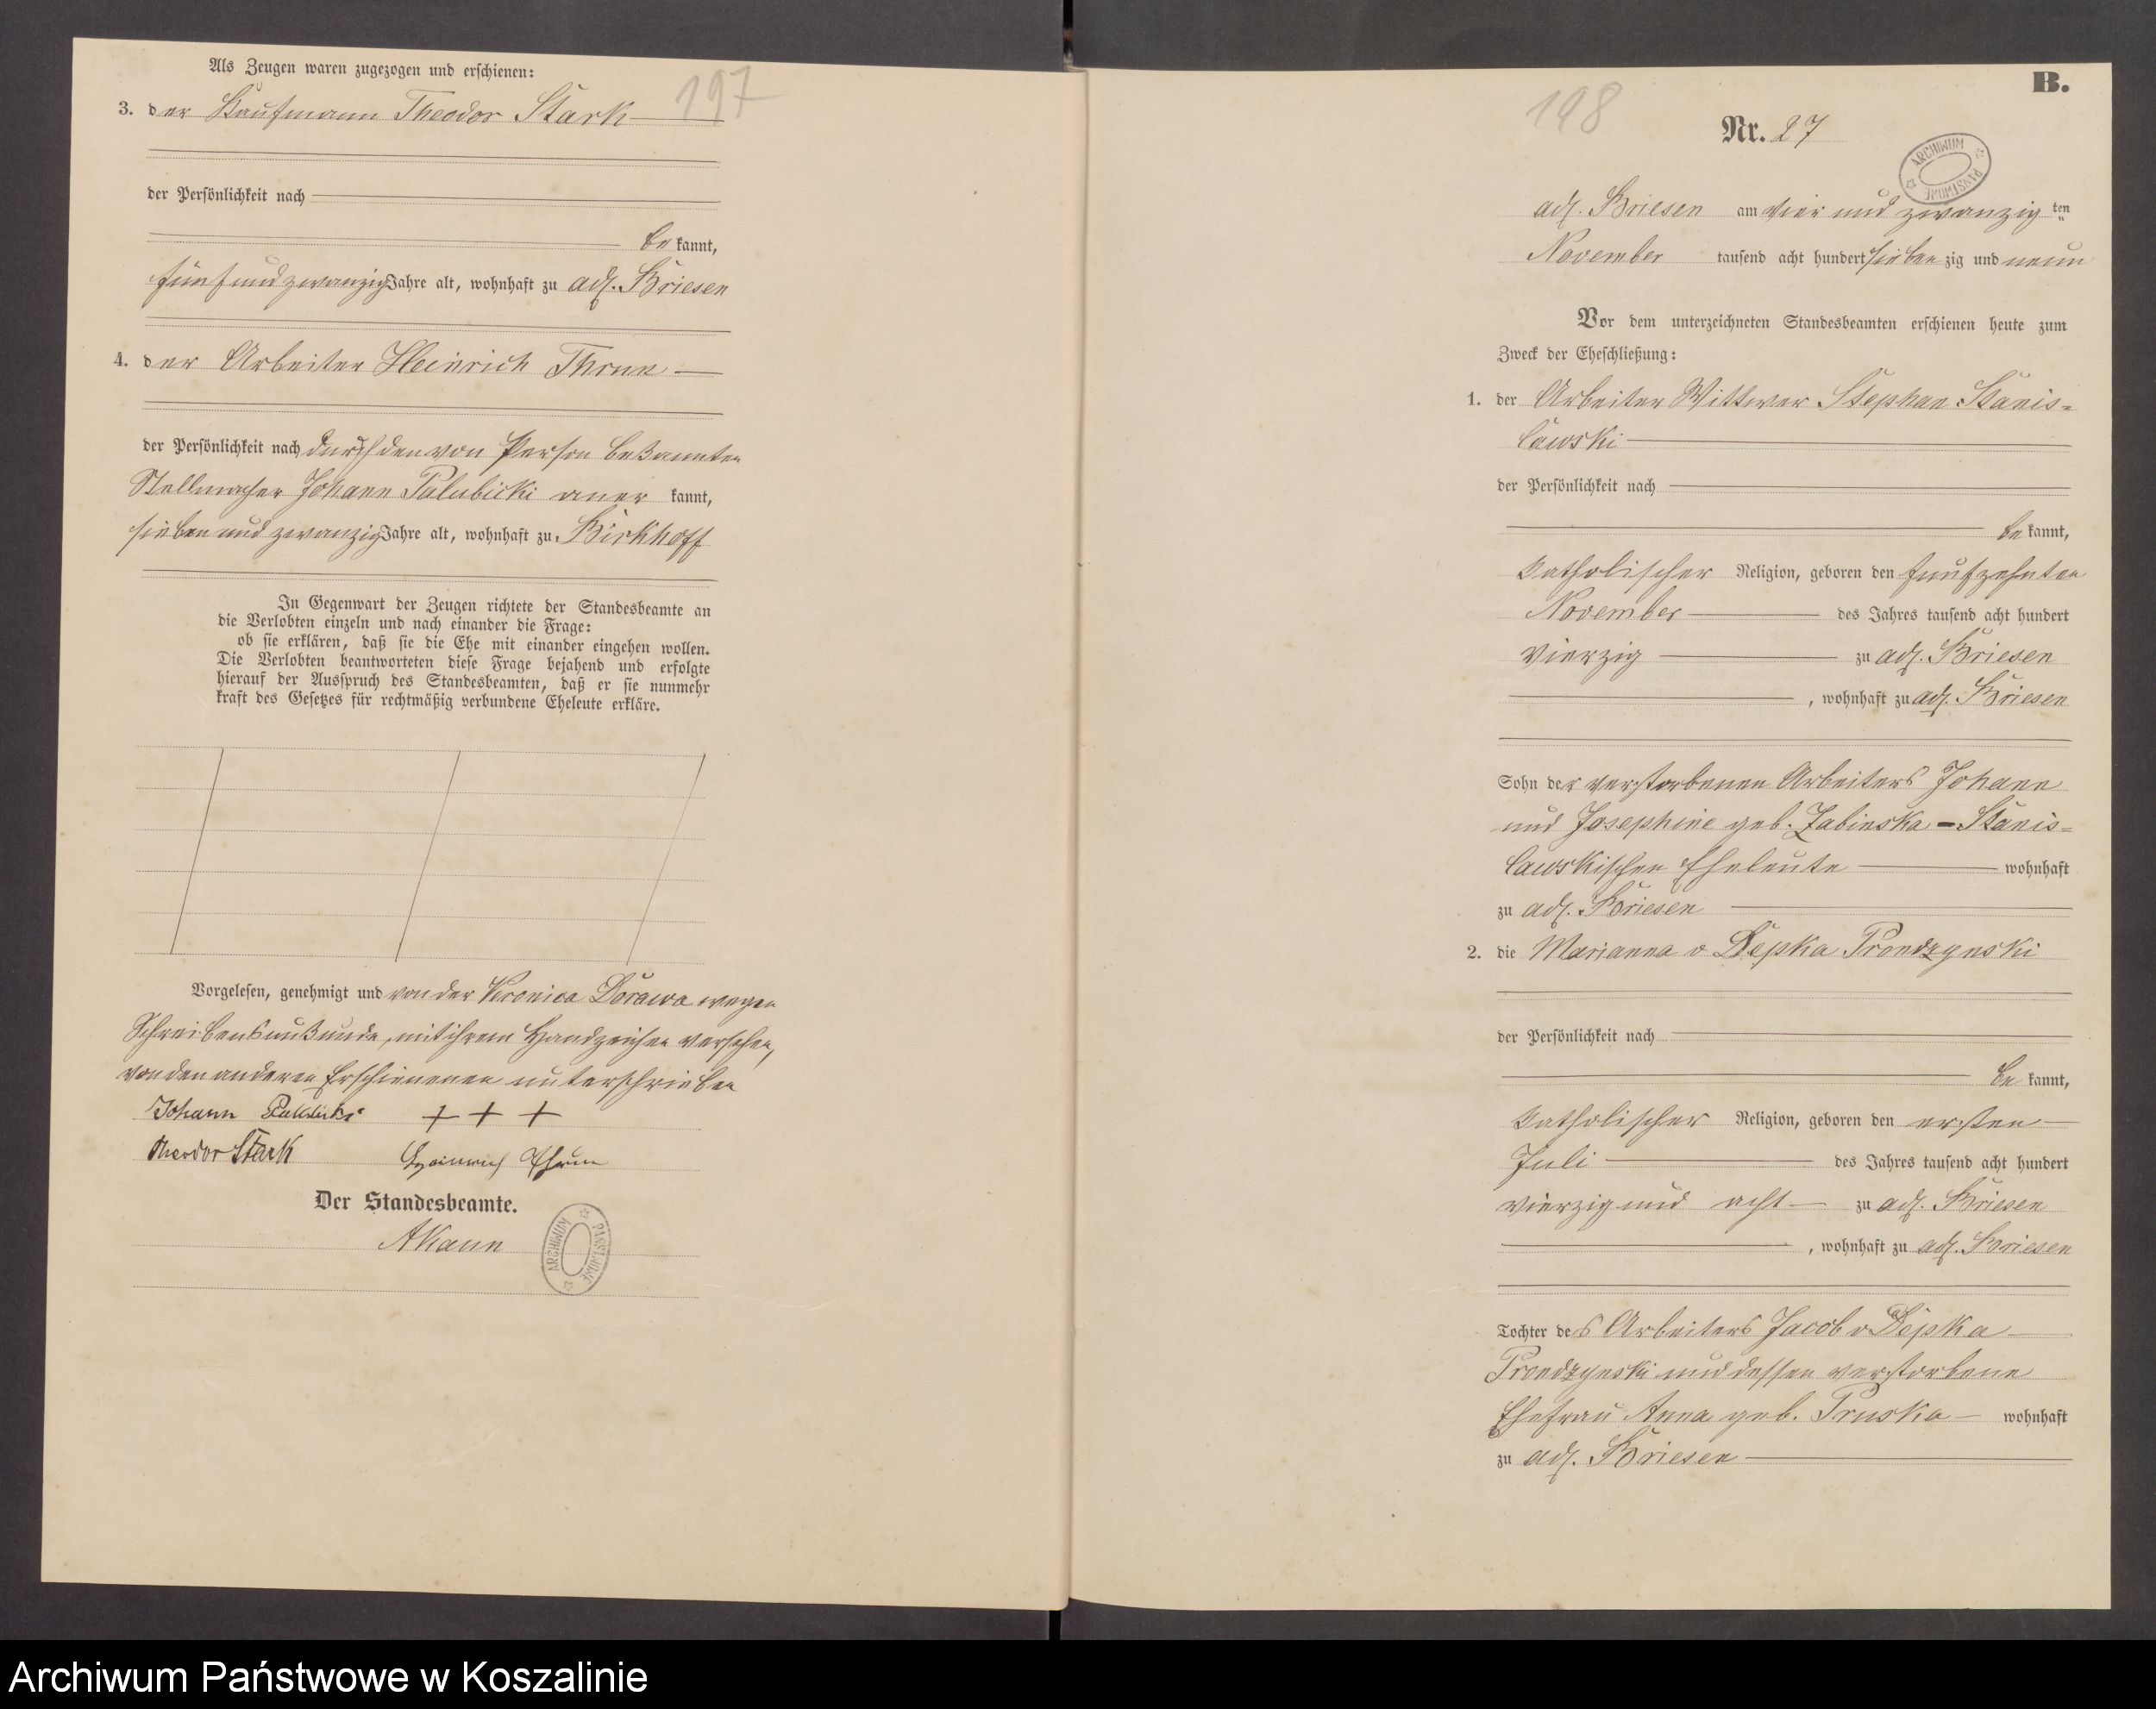 Als Zeugen waren zugezogen und erschienen:
197
3. der Kaufmann Theodor Stark
der Persönlichkeit nach
be kannt,
fünf und zwanzig Jahre alt, wohnhaft zu adl. Briesen
4. der Arbeiter Heinrich Thrun
der Persönlichkeit nach durch den von Person bekannten
Stellmacher Johann Palubicki aner kannt,
sieben und zwanzig Jahre alt, wohnhaft zu Birkhoff
In Gegenwart der Zeugen richtete der Standesbeamte an
die Verlobten einzeln und nach einander die Frage:
ob sie erklären, daß sie die Ehe mit einander eingehen wollen.
Die Verlobten beantworteten diese Frage bejahend und erfolgte
hierauf der Ausspruch des Standesbeamten, daß er sie nunmehr
kraft des Gesetzes für rechtmäßig verbundene Eheleute erkläre.
Vorgelesen, genehmigt und von der Veronica Dorawa wegen
Schreibensunkunde, mit ihrem Handzeichen versehen,
von den anderen Erschienenen unterschrieben
Johann Palubicki + + +
Theodor Stark Heinrich Thrun
Der Standesbeamte.
AKann
ARCHIWUM PAŃSTWOWE
B.
198
Nr. 27
ARCHIWUM PAŃSTWOWE
adl. Briesen am vier und zwanzig ten
November tausend acht hundert sieben zig und neun
Vor dem unterzeichneten Standesbeamten erschienen heute zum
Zweck der Eheschließung:
1. der Arbeiter Wittwer Stephan Stanis=
lawski
der Persönlichkeit nach
be kannt,
katholischer Religion, geboren den funfzehnten
November des Jahres tausend acht hundert
vierzig zu adl. Briesen
, wohnhaft zu adl. Briesen
Sohn der verstorbenen Arbeiters Johann
und Josephine geb. Zabinska - Stanis=
lawskischen Eheleute wohnhaft
zu adl. Briesen
2. die Marianna v Depka Prondzynski
der Persönlichkeit nach
be kannt,
katholischer Religion, geboren den ersten
Juli des Jahres tausend acht hundert
vierzig und acht zu adl. Briesen
, wohnhaft zu adl. Briesen
Tochter des Arbeiters Jacob v Depka
Prondzynski und dessen verstorbene
Ehefrau Anna geb. Pruska wohnhaft
zu adl. Briesen
Archiwum Państwowe w Koszalinie